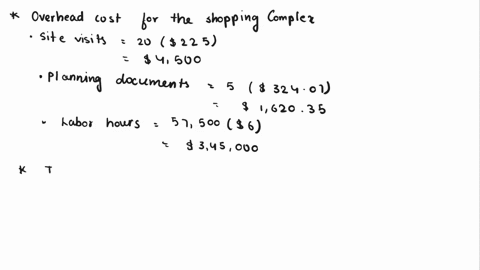 * Overhead cost for the shopping Complex
• Site visits = 20 ($225)
= $4,500
• Planning documents = 5 ($324.07)
= $1,620.35
• Labor hours = 57,500 ($6)
= $3,45,000
* T